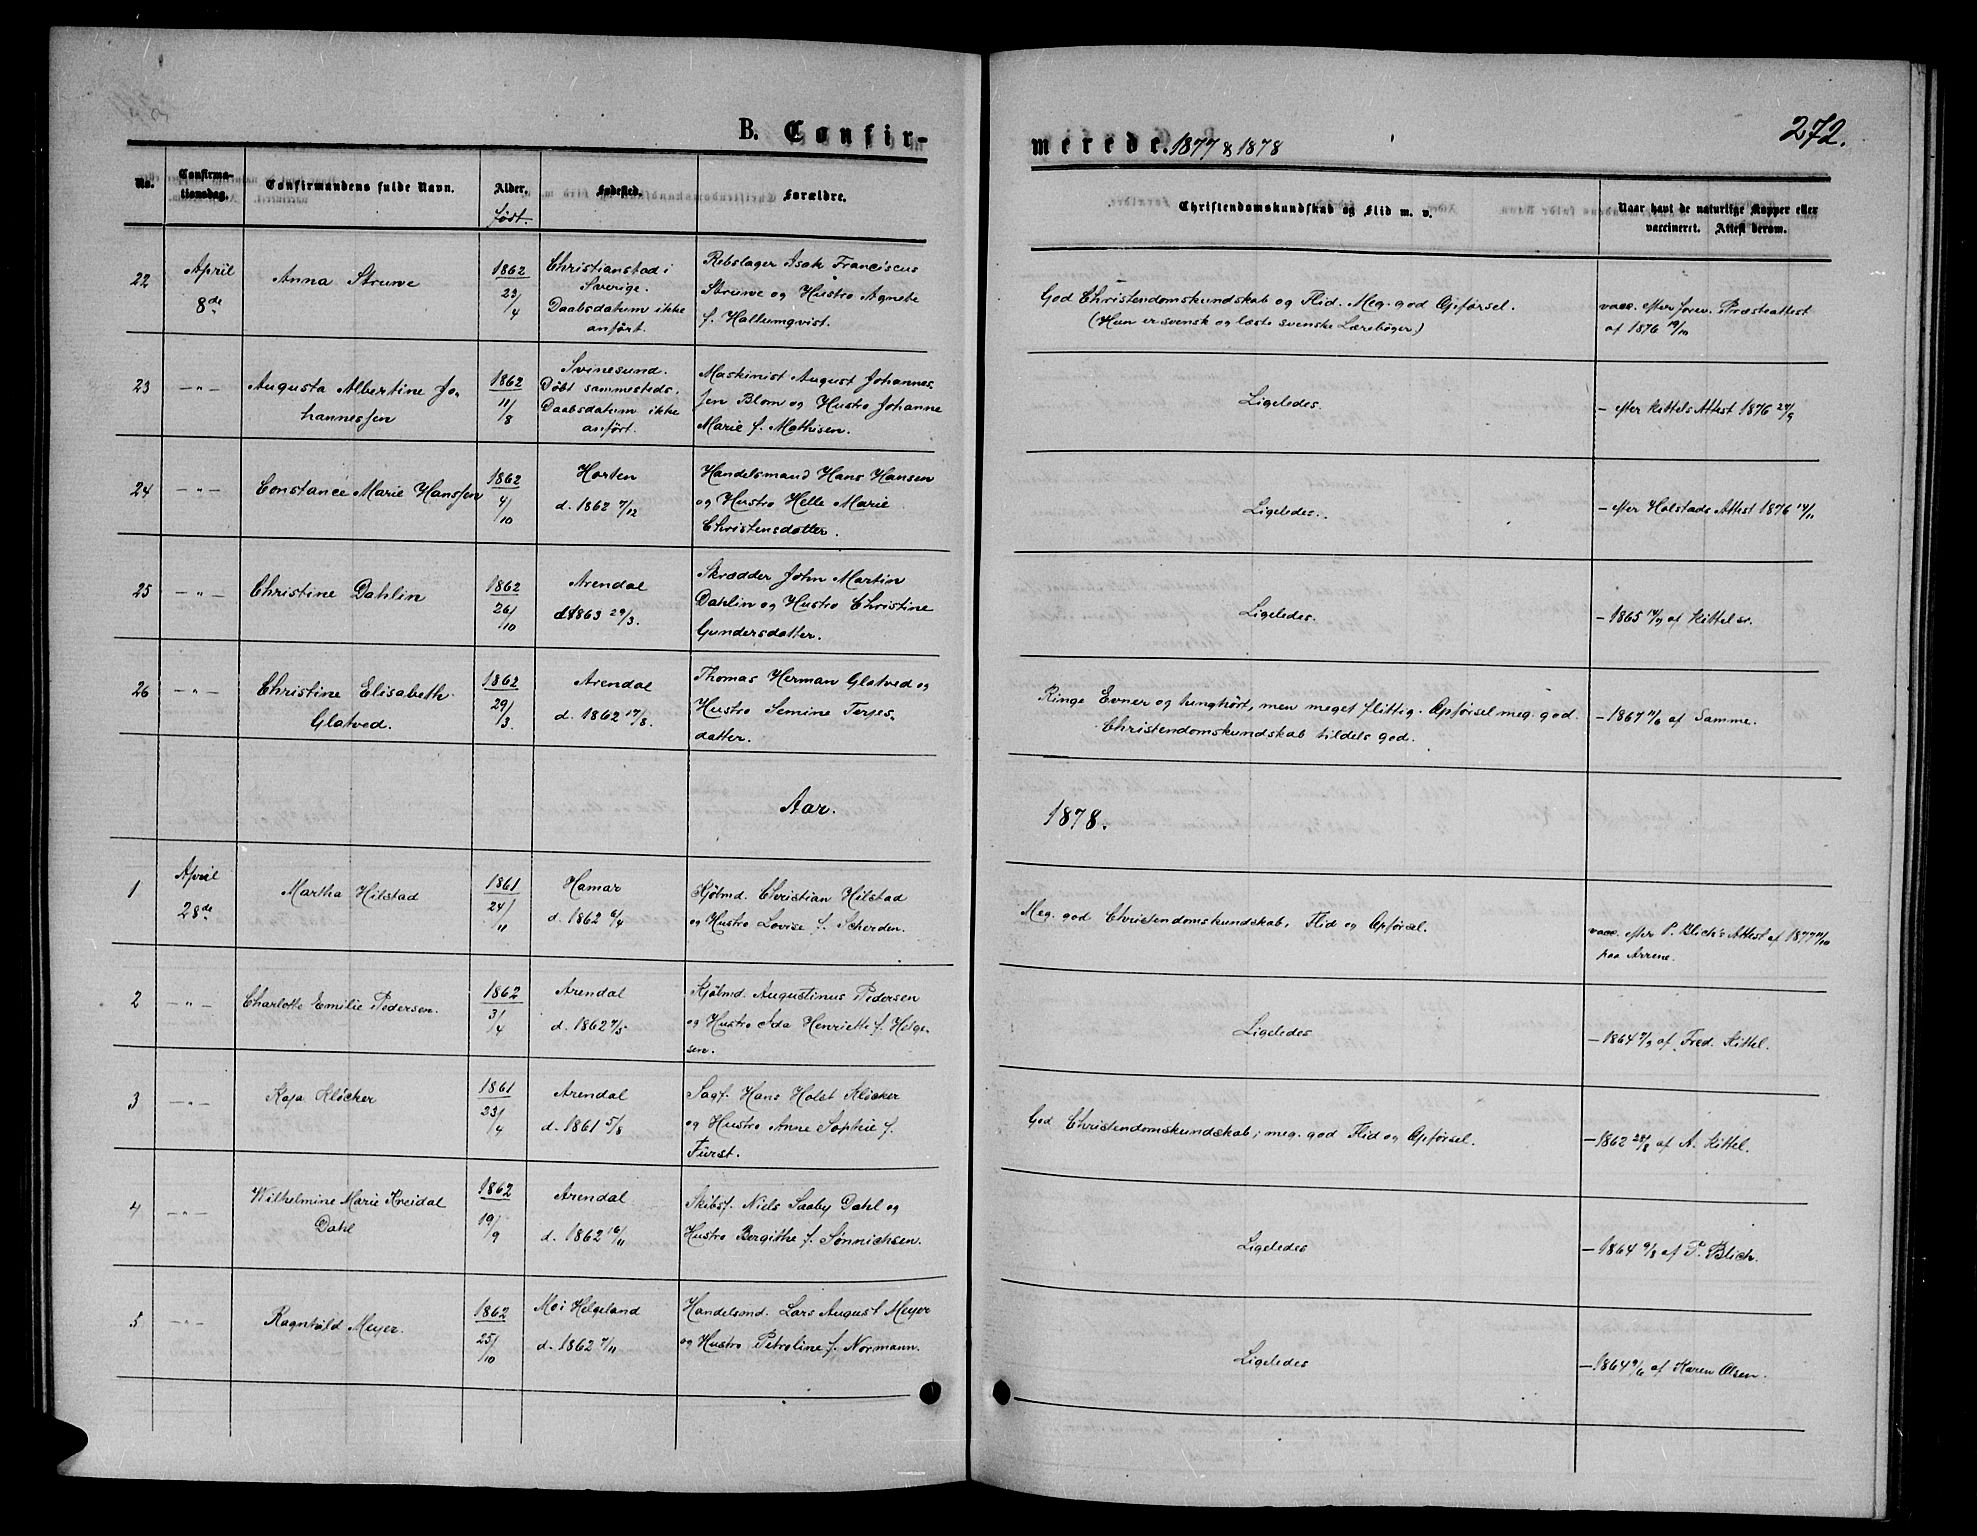 B. Confir-
merede. 1877 & 1878
272.
No.
Confirma-
tionsdag.
Confirmandens fulde Navn.
Alder,
født.
Fødested.
Forældre.
Christendomskundskab og Flid m. v.
Naar havt de naturlige Kopper eller
vaccineret. Attest derom.
22
April
8de
Anna Struwe
1862
23/4
Christianstad i
Sverige.
Daabsdatum ikke
anført.
Rebslager Isak Franciscus
Struwe og Hustro Agnete
f. Hallumqvist.
God Christendomskundskab og Flid. Meg. god Opførsel.
(Hun er svensk og læste svenske Lærebøger)
vacc. efter forev. Præsteattest
af 1876 19/10
23
- " -
Augusta Albertine Jo-
hannessen
1862
11/8
Svinesund.
Døbt sammesteds.
Daabsdatum ikke
anført.
Maskinist August Johannes
sen Blom og Hustro Johanne
Marie f. Mathisen.
Ligeledes.
- efter Kittels Attest 1876 24/9
24
- " -
Constance Marie Hanssen
1862
4/10
Horten
d. 1862 7/12
Handelsmand Hans Hansen
og Hustro Helle Marie
Christensdatter.
Ligeledes.
- efter Holstads Attest 1876 14/11
25
- " -
Christine Dahlin
1862
26/10
Arendal
d. 1863 29/3.
Skrædder John Martin
Dahlin og Hustro Christine
Gundersdatter.
Ligeledes.
- 1865 14/9 af Kittel sr.
26
- " -
Christine Elisabeth
Glatved.
1862
29/3.
Arendal
d. 1862 17/8.
Thomas Herman Glatved og
Hustro Semine Terjes-
datter.
Ringe Evner og tunghørt, men meget flittig. Opførsel meg. god.
Christendomskundskab tildels god.
- 1867 11/6 af Samme.
Aar.
1878.
1
April
28de
Martha Hilstad
1861
24/11
Hamar
d. 1862 6/4
Kjølmd. Christian Hilstad
og Hustro Lovise f. Scherden.
Meg. god Christendomskundskab, Flid og Opførsel.
vacc. efter P. Blich's Attest af 1877 11/10
paa Arrene.
2
- " -
Charlotte Emilie Pedersen.
1862
31/4
Arendal
d. 1862 7/5
Kjølmd. Augustinus Pedersen
og Hustro Ida Henriette f. Helge-
sen.
Ligeledes
- 1864 7/9 af Fred. Kittel.
3
- " -
Kaja Kløcker
1861
23/4
Arendal
d. 1861 5/8
Sagf. Hans Holst Kløcker
og Hustro Anne Sophie f.
Fürst.
God Christendomskundskab, meg. god Flid og Opførsel.
- 1862 28/8 af A. Kittel.
4
- " -
Wilhelmine Marie Kreidal
Dahl
1862
19/9
Arendal
d. 1862 16/11
Skibsf. Niels Saaby Dahl og
Hustro Bergithe f. Sønnichsen.
Ligeledes
- 1864 9/8 af P. Blich.
5
- " -
Ragnhild Meyer.
1862
25/10
Mo i Helgeland
d. 1862 7/11
Handelsmd. Lars August Meyer
og Hustro Petroline f. Normann.
Ligeledes
- 1864 9/6 af Karen Olsen.